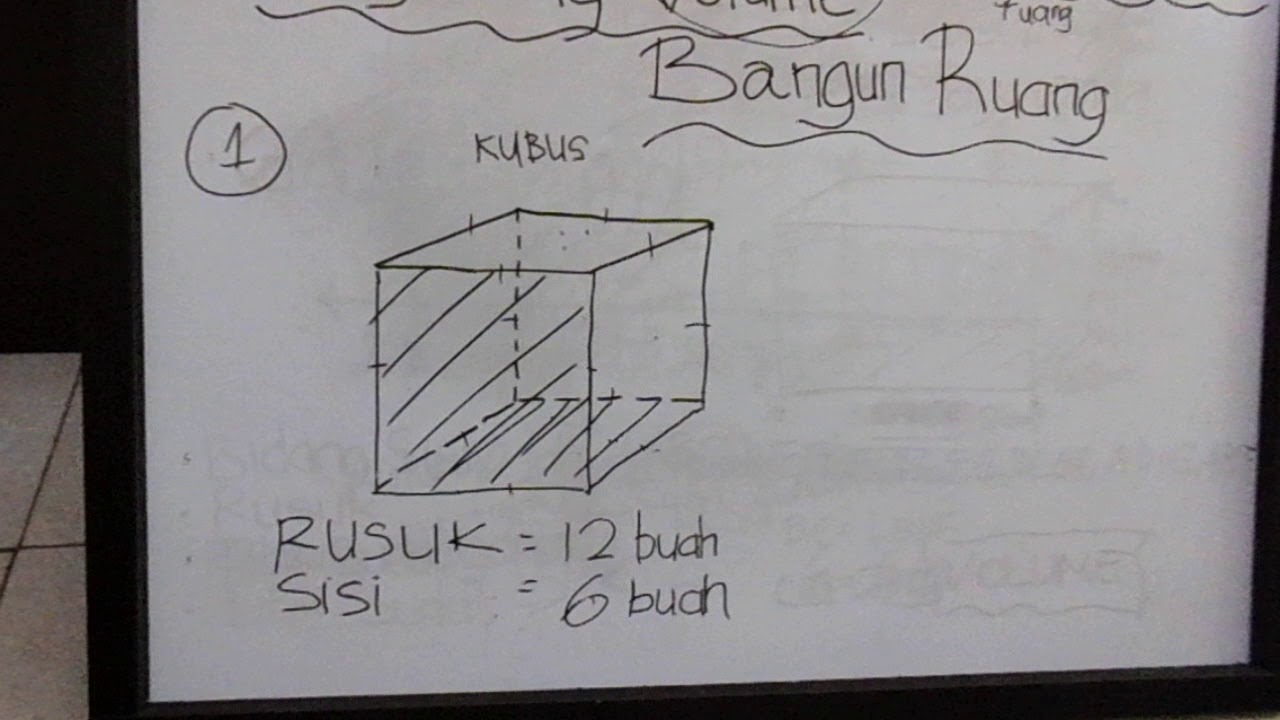 Volume
ruang
Bangun Ruang
1
KUBUS
RUSUK = 12 buah
Sisi = 6 buah
VOLUME